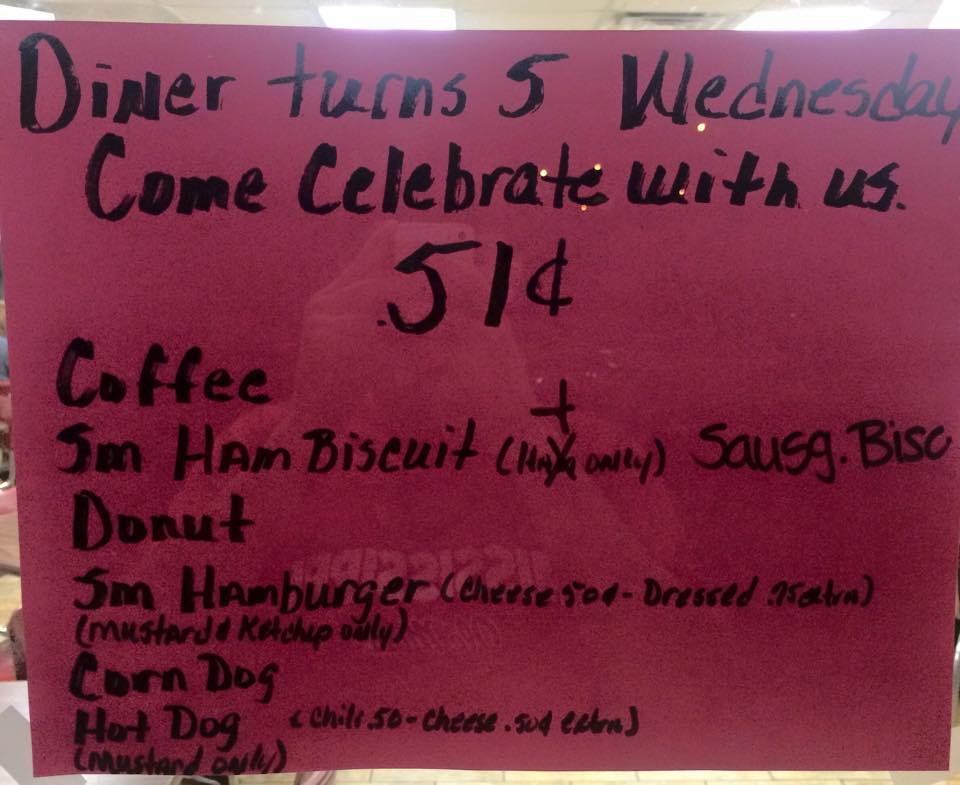 Diner turns 5 Wednesday
Come Celebrate with us.
.51¢
Coffee
Sm Ham Biscuit (Ham only) + Sausg. Bisc
Donut
Sm Hamburger (Cheese 50¢ - Dressed .75 extra)
(Mustard & Ketchup only)
Corn Dog
Hot Dog (Chili .50 - Cheese .50¢ extra)
(Mustard only)